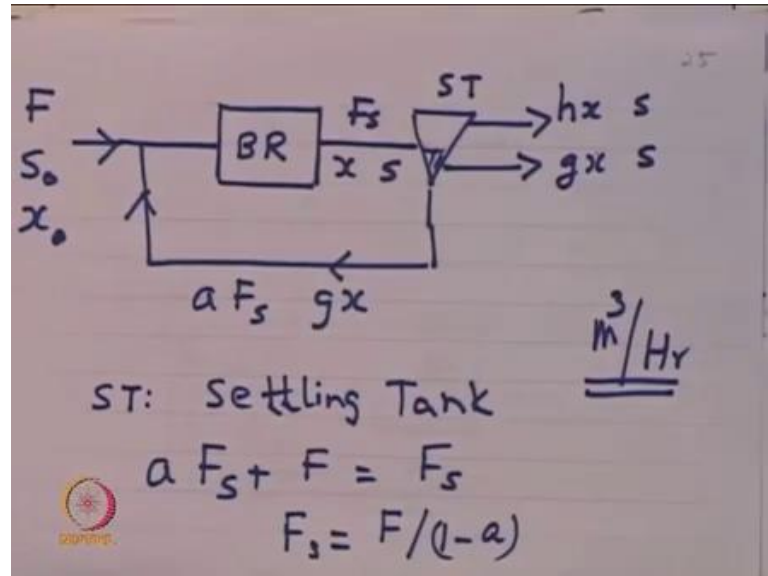 25
ST
F
S₀
x₀
BR
Fₛ
x s
hx s
gx s
a Fₛ gx
m³/Hr
ST: Settling Tank
a Fₛ + F = Fₛ
Fₛ = F/(1-a)